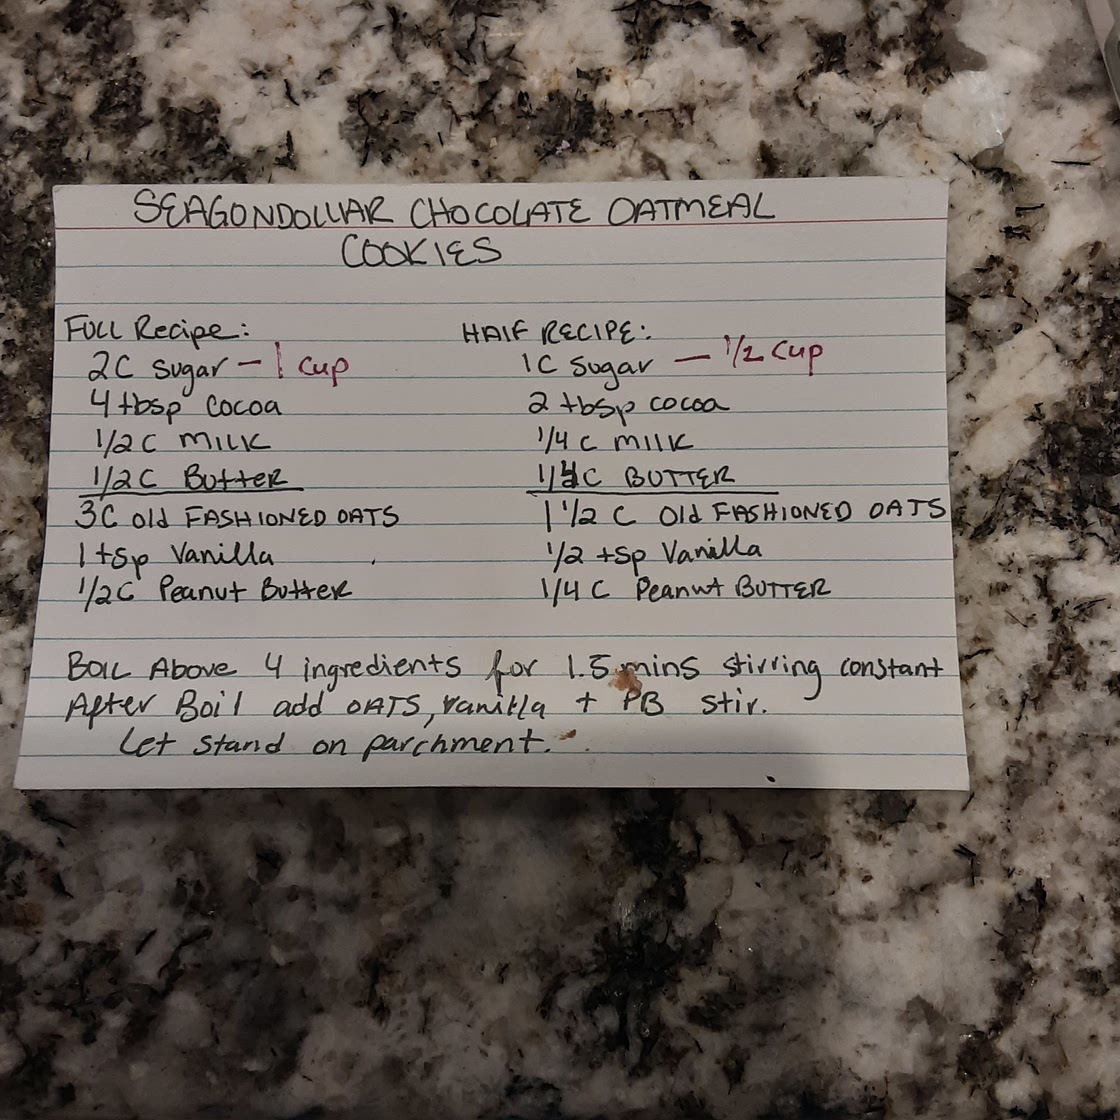 SEAGONDOLLAR CHOCOLATE OATMEAL
COOKIES
FULL Recipe:
2C Sugar - 1 cup
4 tbsp cocoa
1/2 C MILK
1/2 C Butter
3C Old FASHIONED OATS
1 tsp Vanilla
1/2 C Peanut Butter
HALF RECIPE:
1C Sugar - 1/2 cup
2 tbsp cocoa
1/4 C MILK
1/4 C BUTTER
1 1/2 C Old FASHIONED OATS
1/2 tsp Vanilla
1/4 C Peanut BUTTER
BOIL Above 4 ingredients for 1.5 mins stirring constant
After Boil add OATS, vanilla + PB stir.
Let stand on parchment.